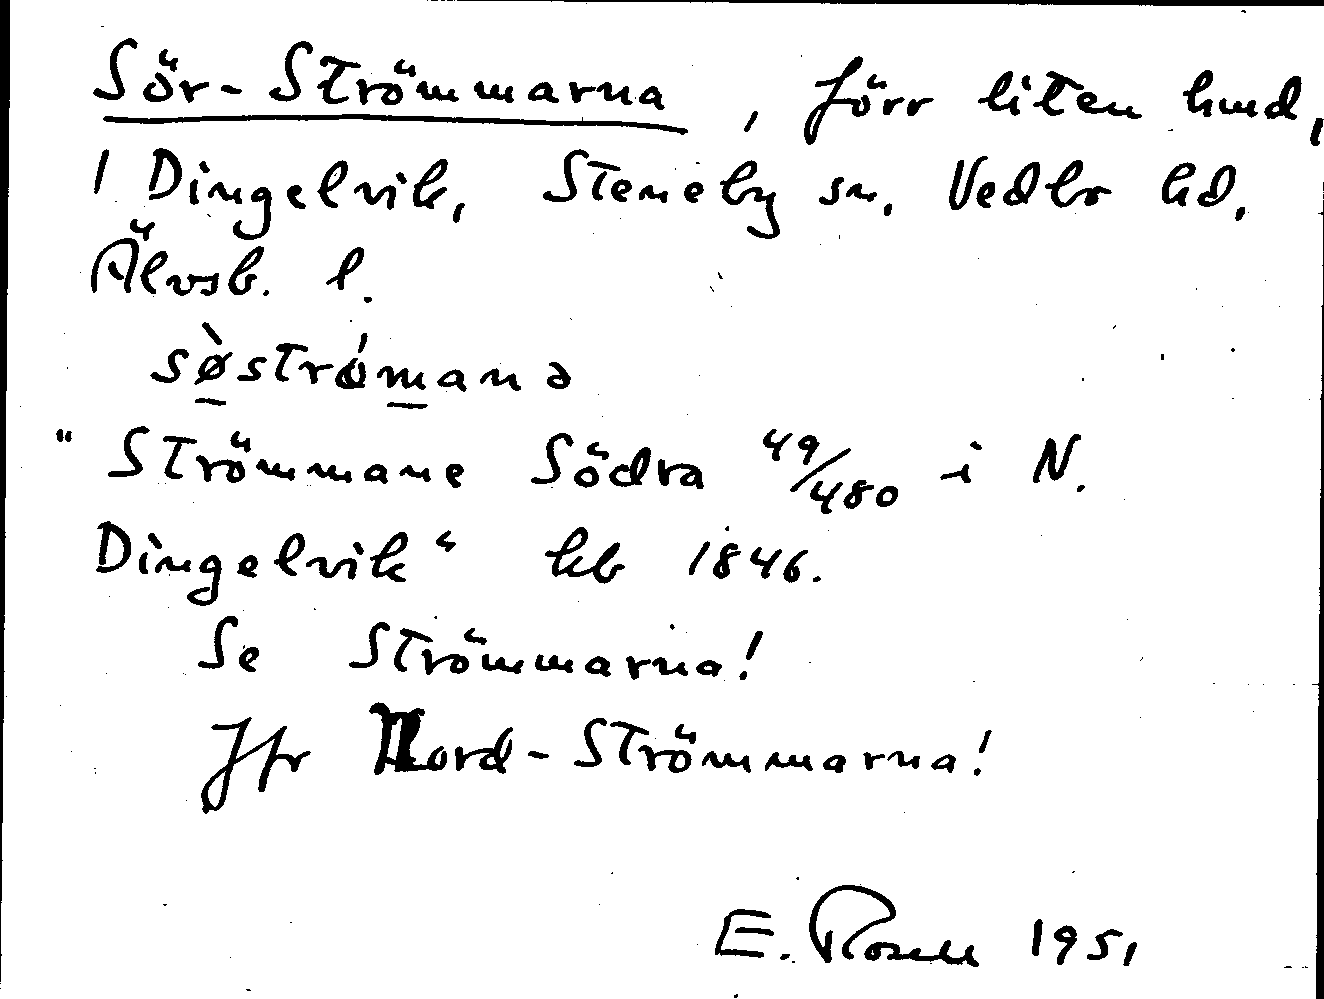 Sör-Strömmarna, förr liten hmd,
1 Dingelvik, Steneby sn. Vedbo hd.
Älvsb. l.
sø̀strómanə
"Strömmane Södra 49/480 i N.
Dingelvik" kb 1846.
Se Strömmarna!
Jfr Nord-Strömmarna!
E. Rosell 1951